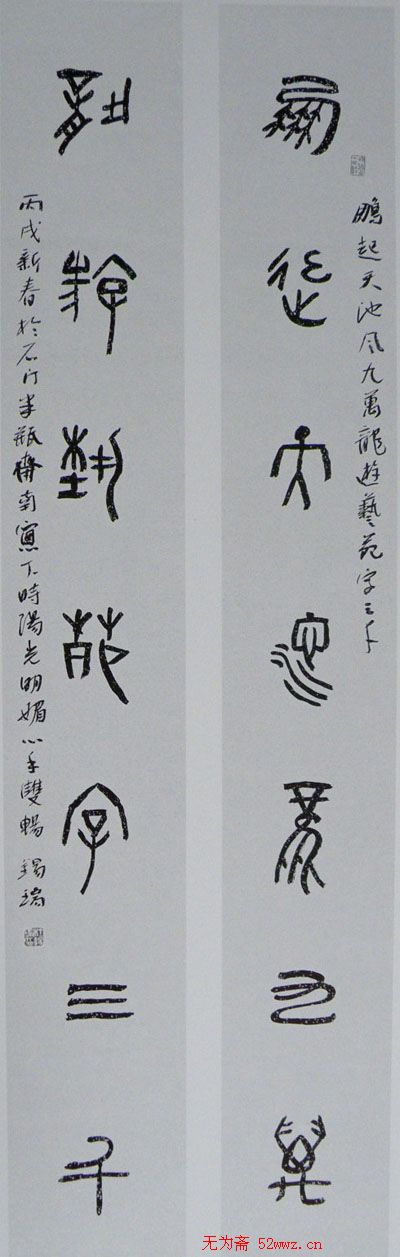 鵬起天池風九萬龍遊藝苑字三千
鵬起天池風九萬
龍遊藝苑字三千
丙戌新春於石门半瓶齋南窗下時陽光明媚心手雙暢 錫瑞
无为斋 52wwz.cn